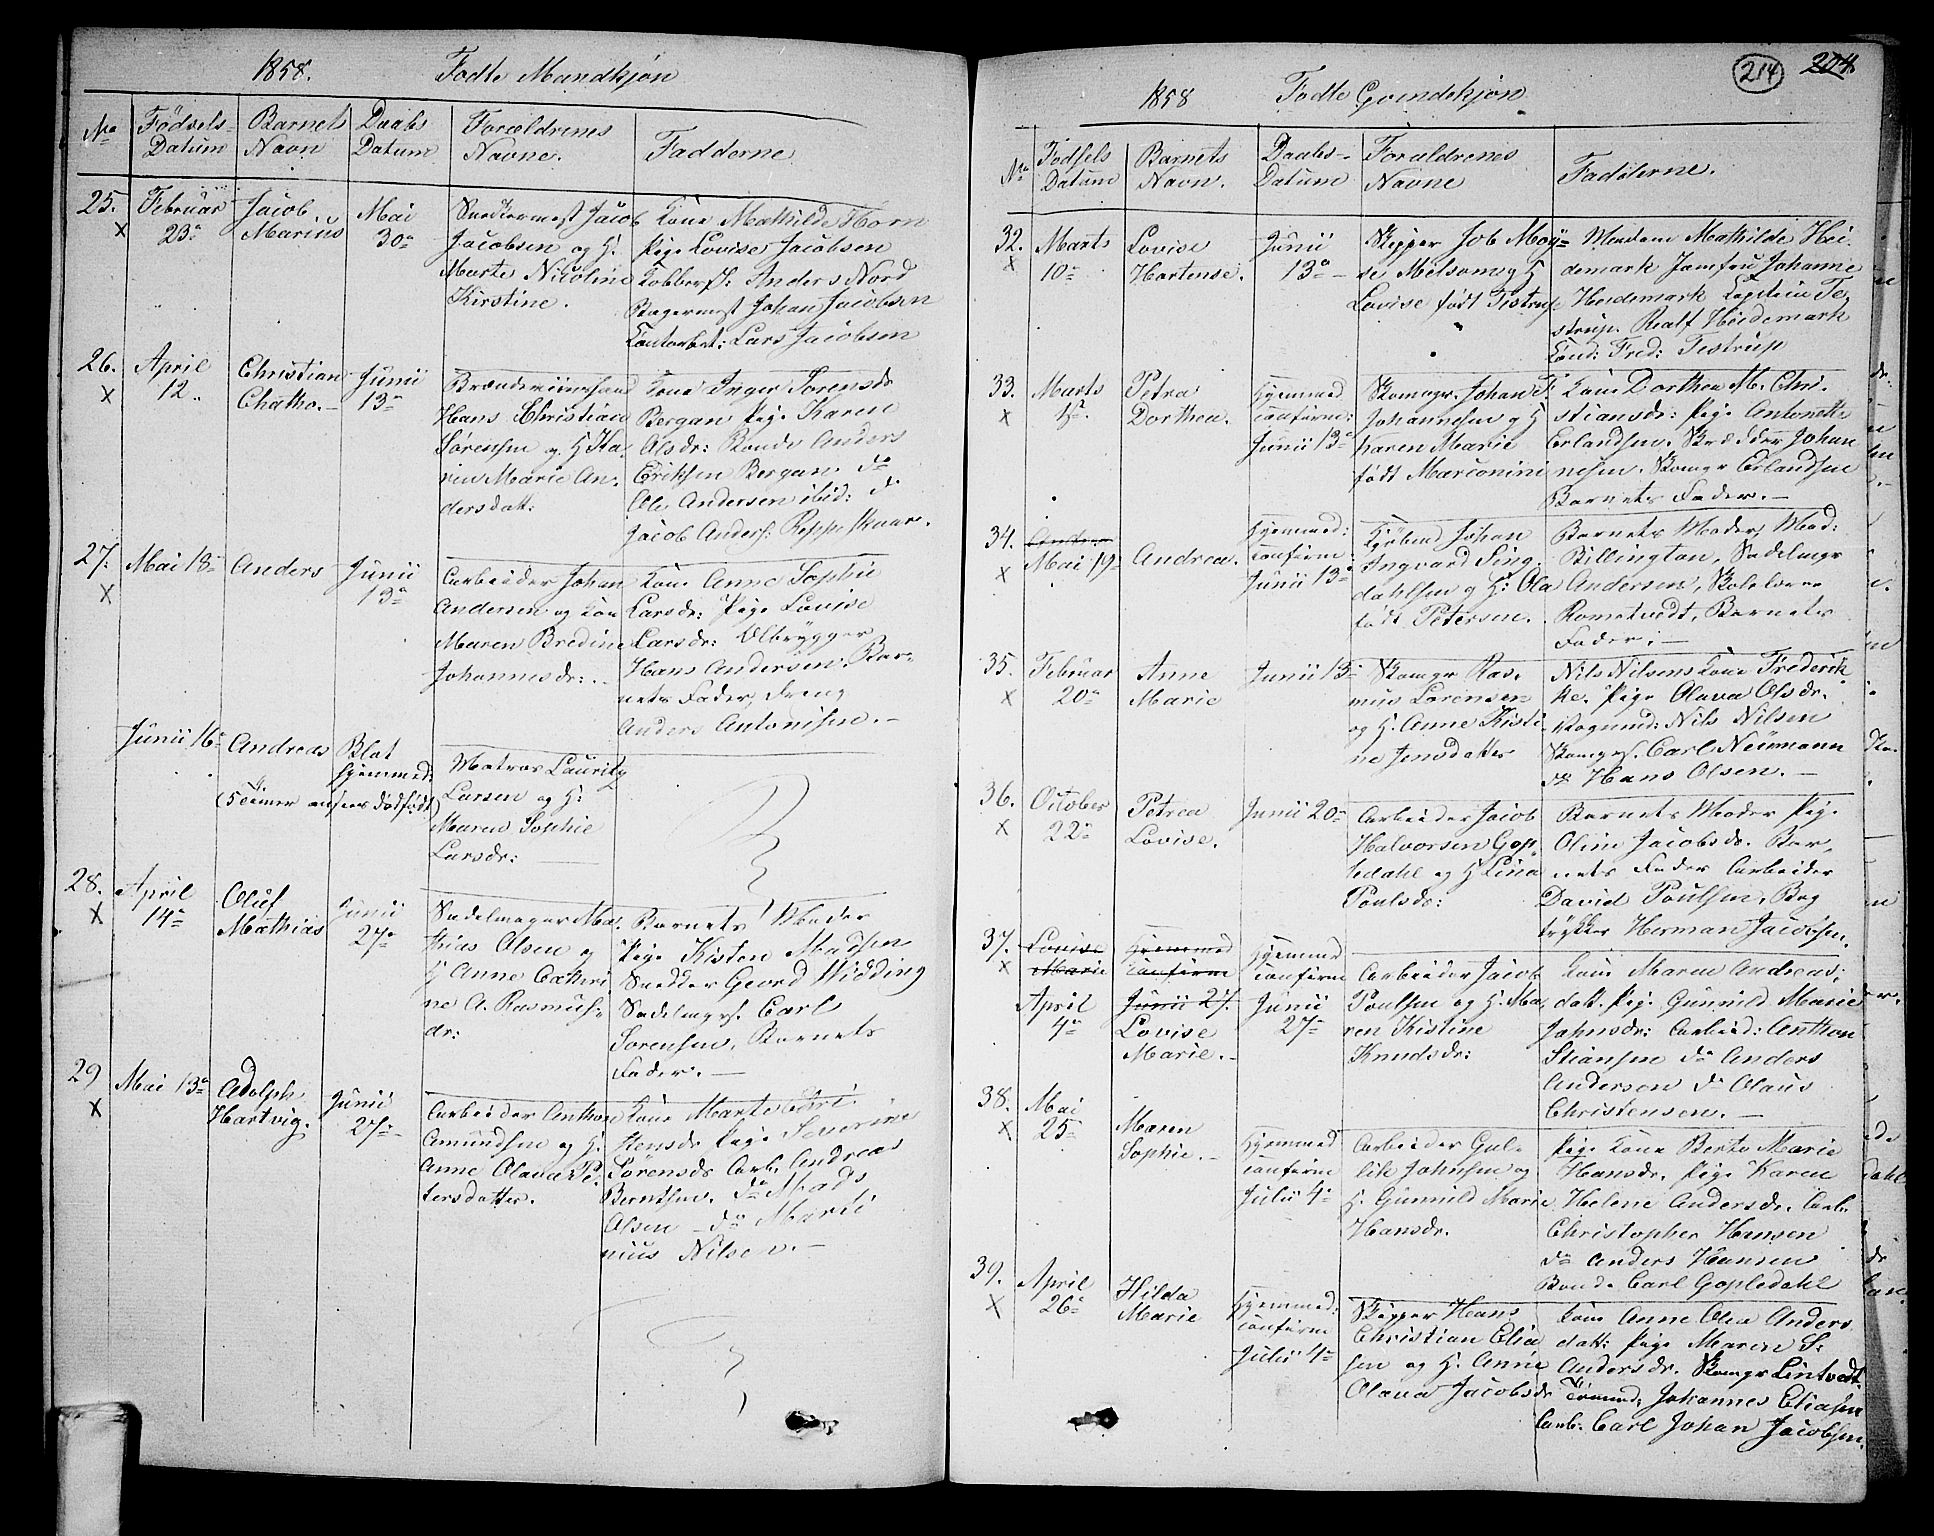 1858. Fødte Mandkjøn
No Fødsels- Datum Barnets Navn Daabs Datum Forældrenes Navne. Fadderne
25. Februar 23de Jacob Marius Mai 30te
Jacob
Jacobsen og H.
Marte Nicoline
Kirstine.
Kone Mathilde Horn
Pige Lovise Jacobsen
Anders Nord
Johan Jacobsen
Lars Jacobsen
26. April 12 Christian Junii 13de
Hans Christian
Sørensen og H. Ka-
rin Marie An-
dersdatt:
Kone Inger Sørensdr
Bergan Pige Karen
Olsdr: Bonde Anders
Eriksen Bergan do
Ole Andersen ibid: do
Jacob Anders:
27. Mai 18 Anders Junii 13de
Arbeider Johan
Andersen og Kone
Maren Bredine
Johannesdr:
Kone Anne Sophie
Larsdr: Pige Lovise
Larsdr: Ølbrygger
Hans Andersen. Bar-
nets Fader, Dreng
Anders Antonisen.-
Junii 16 Andreas Blot hjemmed:
(5 Timer dødfødt)
Matros Lauritz
Larsen og H:
Maren Sophie
Larsdr:
28. April 14de Oluf Mathias Junii 27de
Sadelmager Ma-
thias Olsen og
H Anne Cathri
ne A. Rasmus-
dr:
Barnets Moder
Pige Kisten Madsen
Georg Widding
Sadelmgrs. Carl
Sørensen, Barnets
Fader.-
29 Mai 13de Adolph Hartvig. Junii 27de
Arbeider Anthon
Amundsen og H.
Anne Olava Pe-
tersdatter.
Kone Marte
Pige Severine
Sørensdr Arb. Andreas
Berntsen. do Mads
Olsen - do Marti
nius Nilsen.-
214 204.
1858 Fødte Qvindekjøn
No Fødsels Datum Barnets Navn. Daabs- Datum Forældrenes Navne Fadderne.
32. Marts 10de Lovise Hortense. Junii 13de
Skipper Job May-
se Melsom og H
Lovise født Testrup
Madam Mathilde Hei-
demark Jomfru Johanne
Heidemark Capitain Te-
strup. Ralf Heidemark
Cand: Fred: Testrup
33. Marts Petra Dorthea. Hjemmed confirm: Junii 13de
Skomagr. Johan F.
Johannesen og H
Karen Marie
født
Kone Dorthea M. Chri-
stiansdr: Pige Antonette
Erlandsen. Skrædder Johan
nesen. Skomgr Erlandsen
Barnets Fader.-
34. Andrea Mai 19 Andrea. Hjemmed: confirm: Junii 13de
Kjøbmd Johan
Ingvard Ting-
dahlsen og H: Ola
født Petersen.
Barnets Moder, Mad:
Billington, Sadelmgr
Andersen, Skolelærer
Rometvedt, Barnets
Fader.-
35. Februar 20de Anne Marie Junii 13
Skomgr Ras-
mus Lorensen
og H. Anne Kisti
ne Jensdatter
Nils Nilsens Kone Frederik
ke. Pige Olava Olsdr.
Nils Nilsen
Skomgrs. Carl Neumann
do Hans Olsen.-
36. October 22de Petrea Lovise. Junii 20
Arbeider Jacob
Halvorsen Gop-
ledahl og H Lina
Poulsdr:
Barnets Moder Pige
Oline Jacobsdr. Bar-
nets Fader Arbeider
David Poulsen, Bog
trykker Herman Jacobsen.
37. Lovise Marie Hjemmed confirm Junii 27. Hjemmed confirm
April 4de Lovise Marie.- Junii 27
Arbeider Jacob
Poulsen og H. Ma-
ren Kistine
Knudsdr:
Kone Maren Andreas-
datt. Pige Gunnild Marie
Johnsdr: Arbeid: Anthon
Stiansen do Anders
Andersen do Olaus
Christensen.-
38. Mai 25 Maren Sophie.- Hjemmed confirm Julii 4de
Arbeider Gul-
lik Johnsen og
H. Gunnild Marie
Hansdr.
Pige Kone Berte Marie
Hansdr. Pige Karen
Helene Andersdr. Arb.
Christopher Hansen
do Anders Hansen
Bonde Carl Gopledahl
39. April 26de Hilda Marie Hjemmed: confirm Julii 4de
Skipper Hans
Christian Elia
sen og H. Anne
Olava Jacobsdr
Kone Anne Olea Anders
datt: Pige Maren S.
Andersdr. Skomgr Lintvedt
Tømmd. Johannes Eliasen
Arb. Carl Johan Jacobsen.